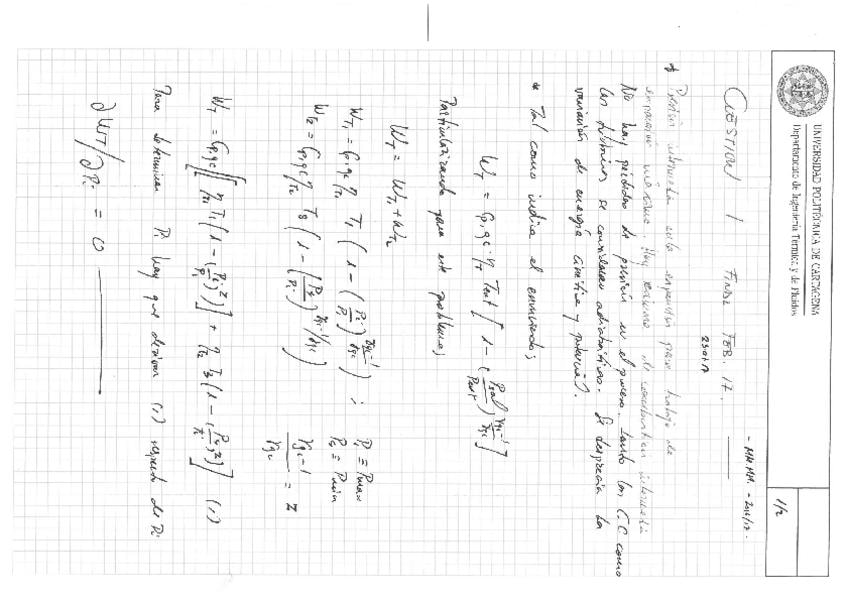 UNIVERSIDAD POLITÉCNICA DE CARTAGENA
Departamento de Ingeniería Térmica y de Fluidos
1/2
- MM.MM. - 2016/17 -
CUESTION 1 FINAL FEB. 17.
* Presión intermedia en la expansión para trabajo de
expansión máximo. Hay cámara de combustión intermedia
No hay pérdidas de presión en el proceso. Tanto las C.C como
las turbinas se consideran adiabáticas. Se desprecia la
variación de energía cinética y potencial.
* Tal como indica el enunciado;
W_T = Cp,gc · η_T T_ent [ 1 - (P_sal/P_ent)^((γgc-1)/γgc) ]
Particularizando para este problema;
W_T = W_T1 + W_T2
W_T1 = Cp,gc η_T1 T_1 ( 1 - (P_i/P_1)^((γgc-1)/γgc) ) ; P_1 ≡ P_max
W_T2 = Cp,gc η_T2 T_3 ( 1 - (P_4/P_i)^((γgc-1)/γgc) )
P_4 ≡ P_min
(γgc-1)/γgc = z
W_T = Cp,gc [[ η_T1 T_1 ( 1 - (P_i/P_1)^z ) ] + η_T2 T_3 ( 1 - (P_4/P_i)^z ) ] (1)
Para determinar P_i hay que derivar (1) respecto de P_i
∂W_T/∂P_i = 0